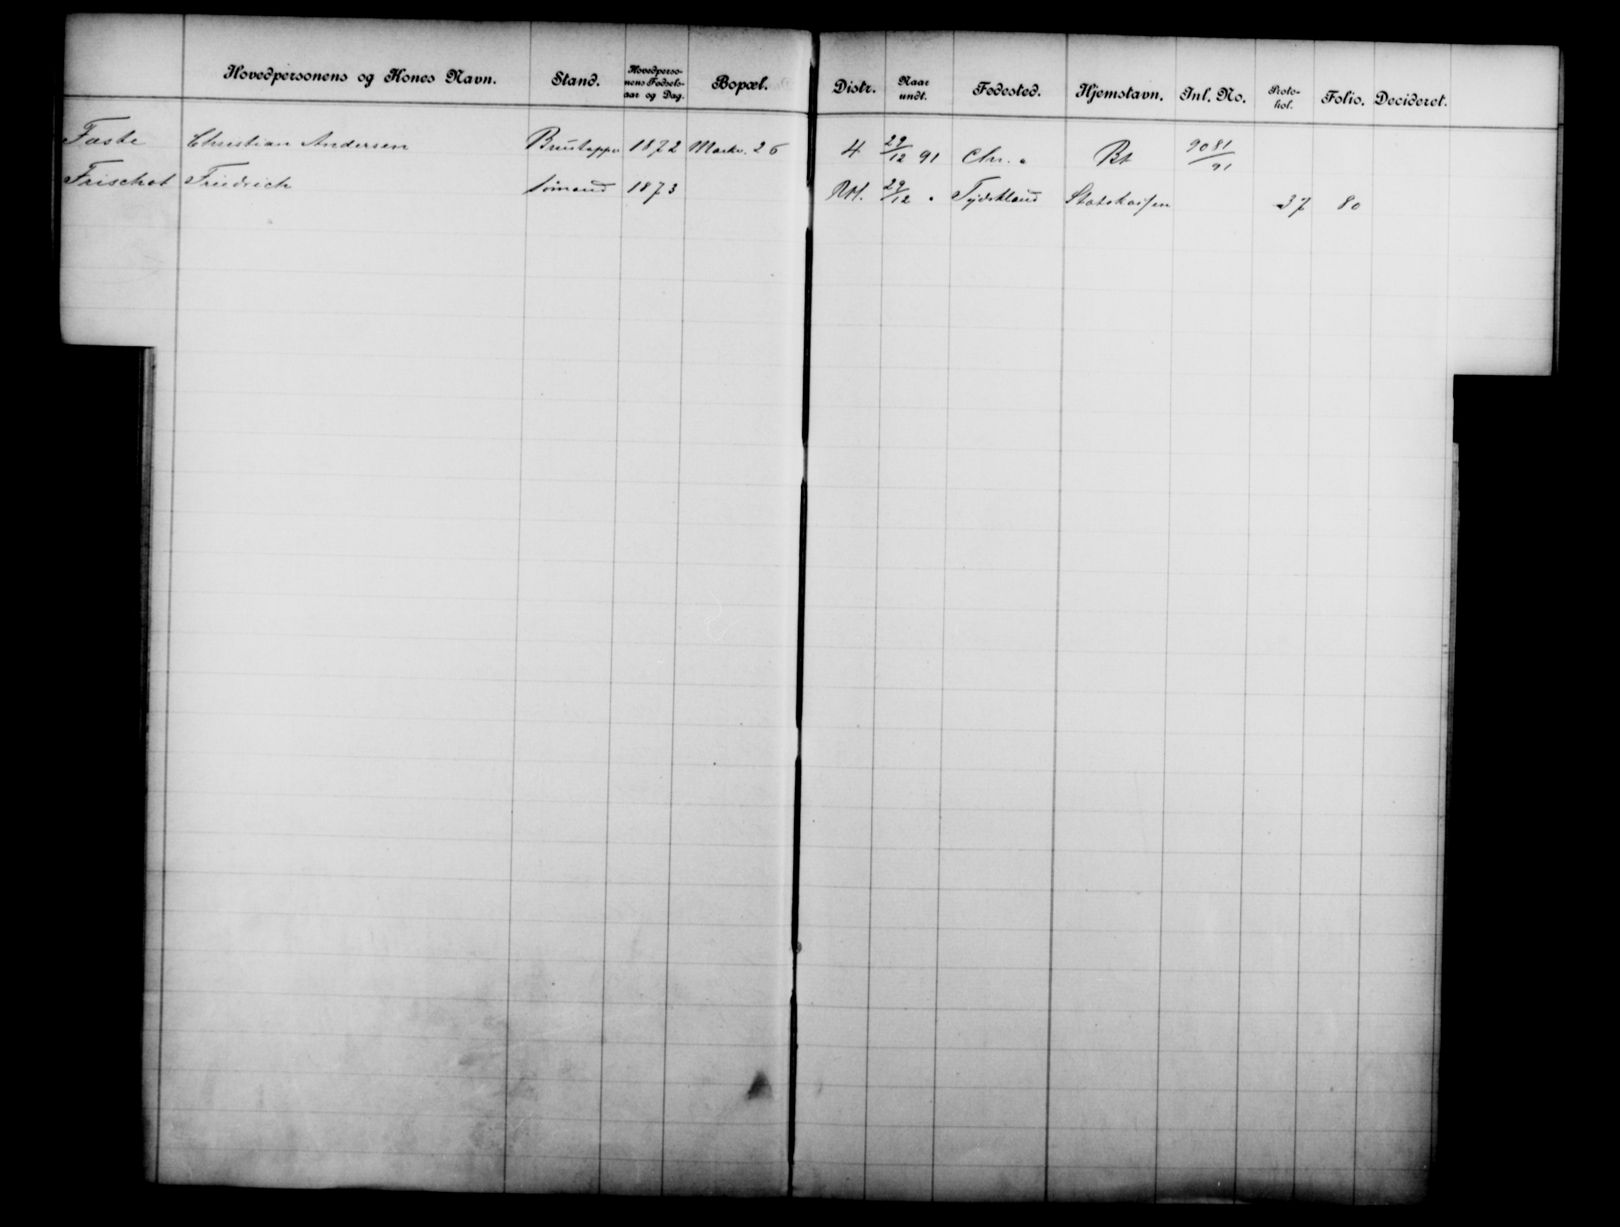 Hovedpersonens og Kones Navn. Stand. Hovedperso-nens Fødsels-aar og Dag. Bopæl. Distr. Naar undt. Fødested. Hjemstavn. Inl. No. Proto-kol. Folio. Decideret.
Faste Christian Andersen 1872 Markv. 26 4 29/12 91 Chr.a Bt 9081/91
Frischot Friedrich Sømand 1873 RH. 29/12 " Tydskland Statskassen 37 80